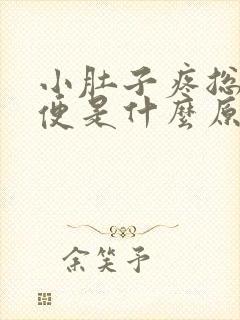 小肚子疼总
便是什麼原
余笑予